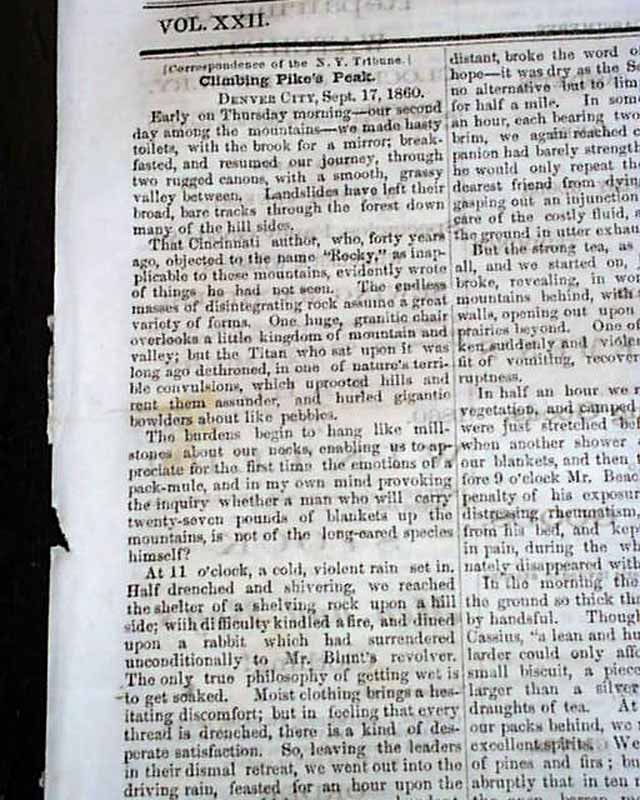 VOL. XXII.
[Correspondence of the N. Y. Tribune.]
Climbing Pike's Peak.
DENVER CITY, Sept. 17, 1860.
Early on Thursday morning—our second
day among the mountains—we made hasty
toilets, with the brook for a mirror; break-
fasted, and resumed our journey, through
two rugged canons, with a smooth, grassy
valley between. Landslides have left their
broad, bare tracks through the forest down
many of the hill sides.
That Cincinnati author, who, forty years
ago, objected to the name "Rocky," as inap-
plicable to these mountains, evidently wrote
of things he had not seen. The endless
masses of disintegrating rock assume a great
variety of forms. One huge, granitic chair
overlooks a little kingdom of mountain and
valley; but the Titan who sat upon it was
long ago dethroned, in one of nature's terri-
ble convulsions, which uprooted hills and
rent them assunder, and hurled gigantic
bowlders about like pebbles.
The burdens begin to hang like mill-
stones about our necks, enabling us to ap-
preciate for the first time the emotions of a
pack-mule, and in my own mind provoking
the inquiry whether a man who will carry
twenty-seven pounds of blankets up the
mountains, is not of the long-eared species
himself?
At 11 o'clock, a cold, violent rain set in.
Half drenched and shivering, we reached
the shelter of a shelving rock upon a hill
side; with difficulty kindled a fire, and dined
upon a rabbit which had surrendered
unconditionally to Mr. Blunt's revolver.
The only true philosophy of getting wet is
to get soaked. Moist clothing brings a hes-
itating discomfort; but in feeling that every
thread is drenched, there is a kind of des-
perate satisfaction. So, leaving the leaders
in their dismal retreat, we went out into the
driving rain, feasted for an hour upon the
distant, broke the word of
hope—it was dry as the
no alternative but to
for half a mile. In
an hour, each bearing two
brim, we again reached
panion had barely strength
he would only repeat
dearest friend from dying
gasping out an injunction
care of the costly fluid,
the ground in utter
But the strong tea, as
all, and we started on,
broke, revealing, in
mountains behind, with
walls, opening out upon
prairies beyond. One
ken suddenly and
fit of vomiting,
ruptness.
In half an hour we
vegetation, and camped
were just stretched
when another shower
our blankets, and then
fore 9 o'clock Mr.
penalty of his
distressing rheumatism,
from his bed, and
in pain, during the
nately disappeared with
In the morning the
the ground so thick
by handsful.
Cassius, "a lean and
larder could only
small biscuit, a piece
larger than a silver
draughts of tea. At
our packs behind, we
excellent spirits. We
of pines and firs;
abruptly that in ten